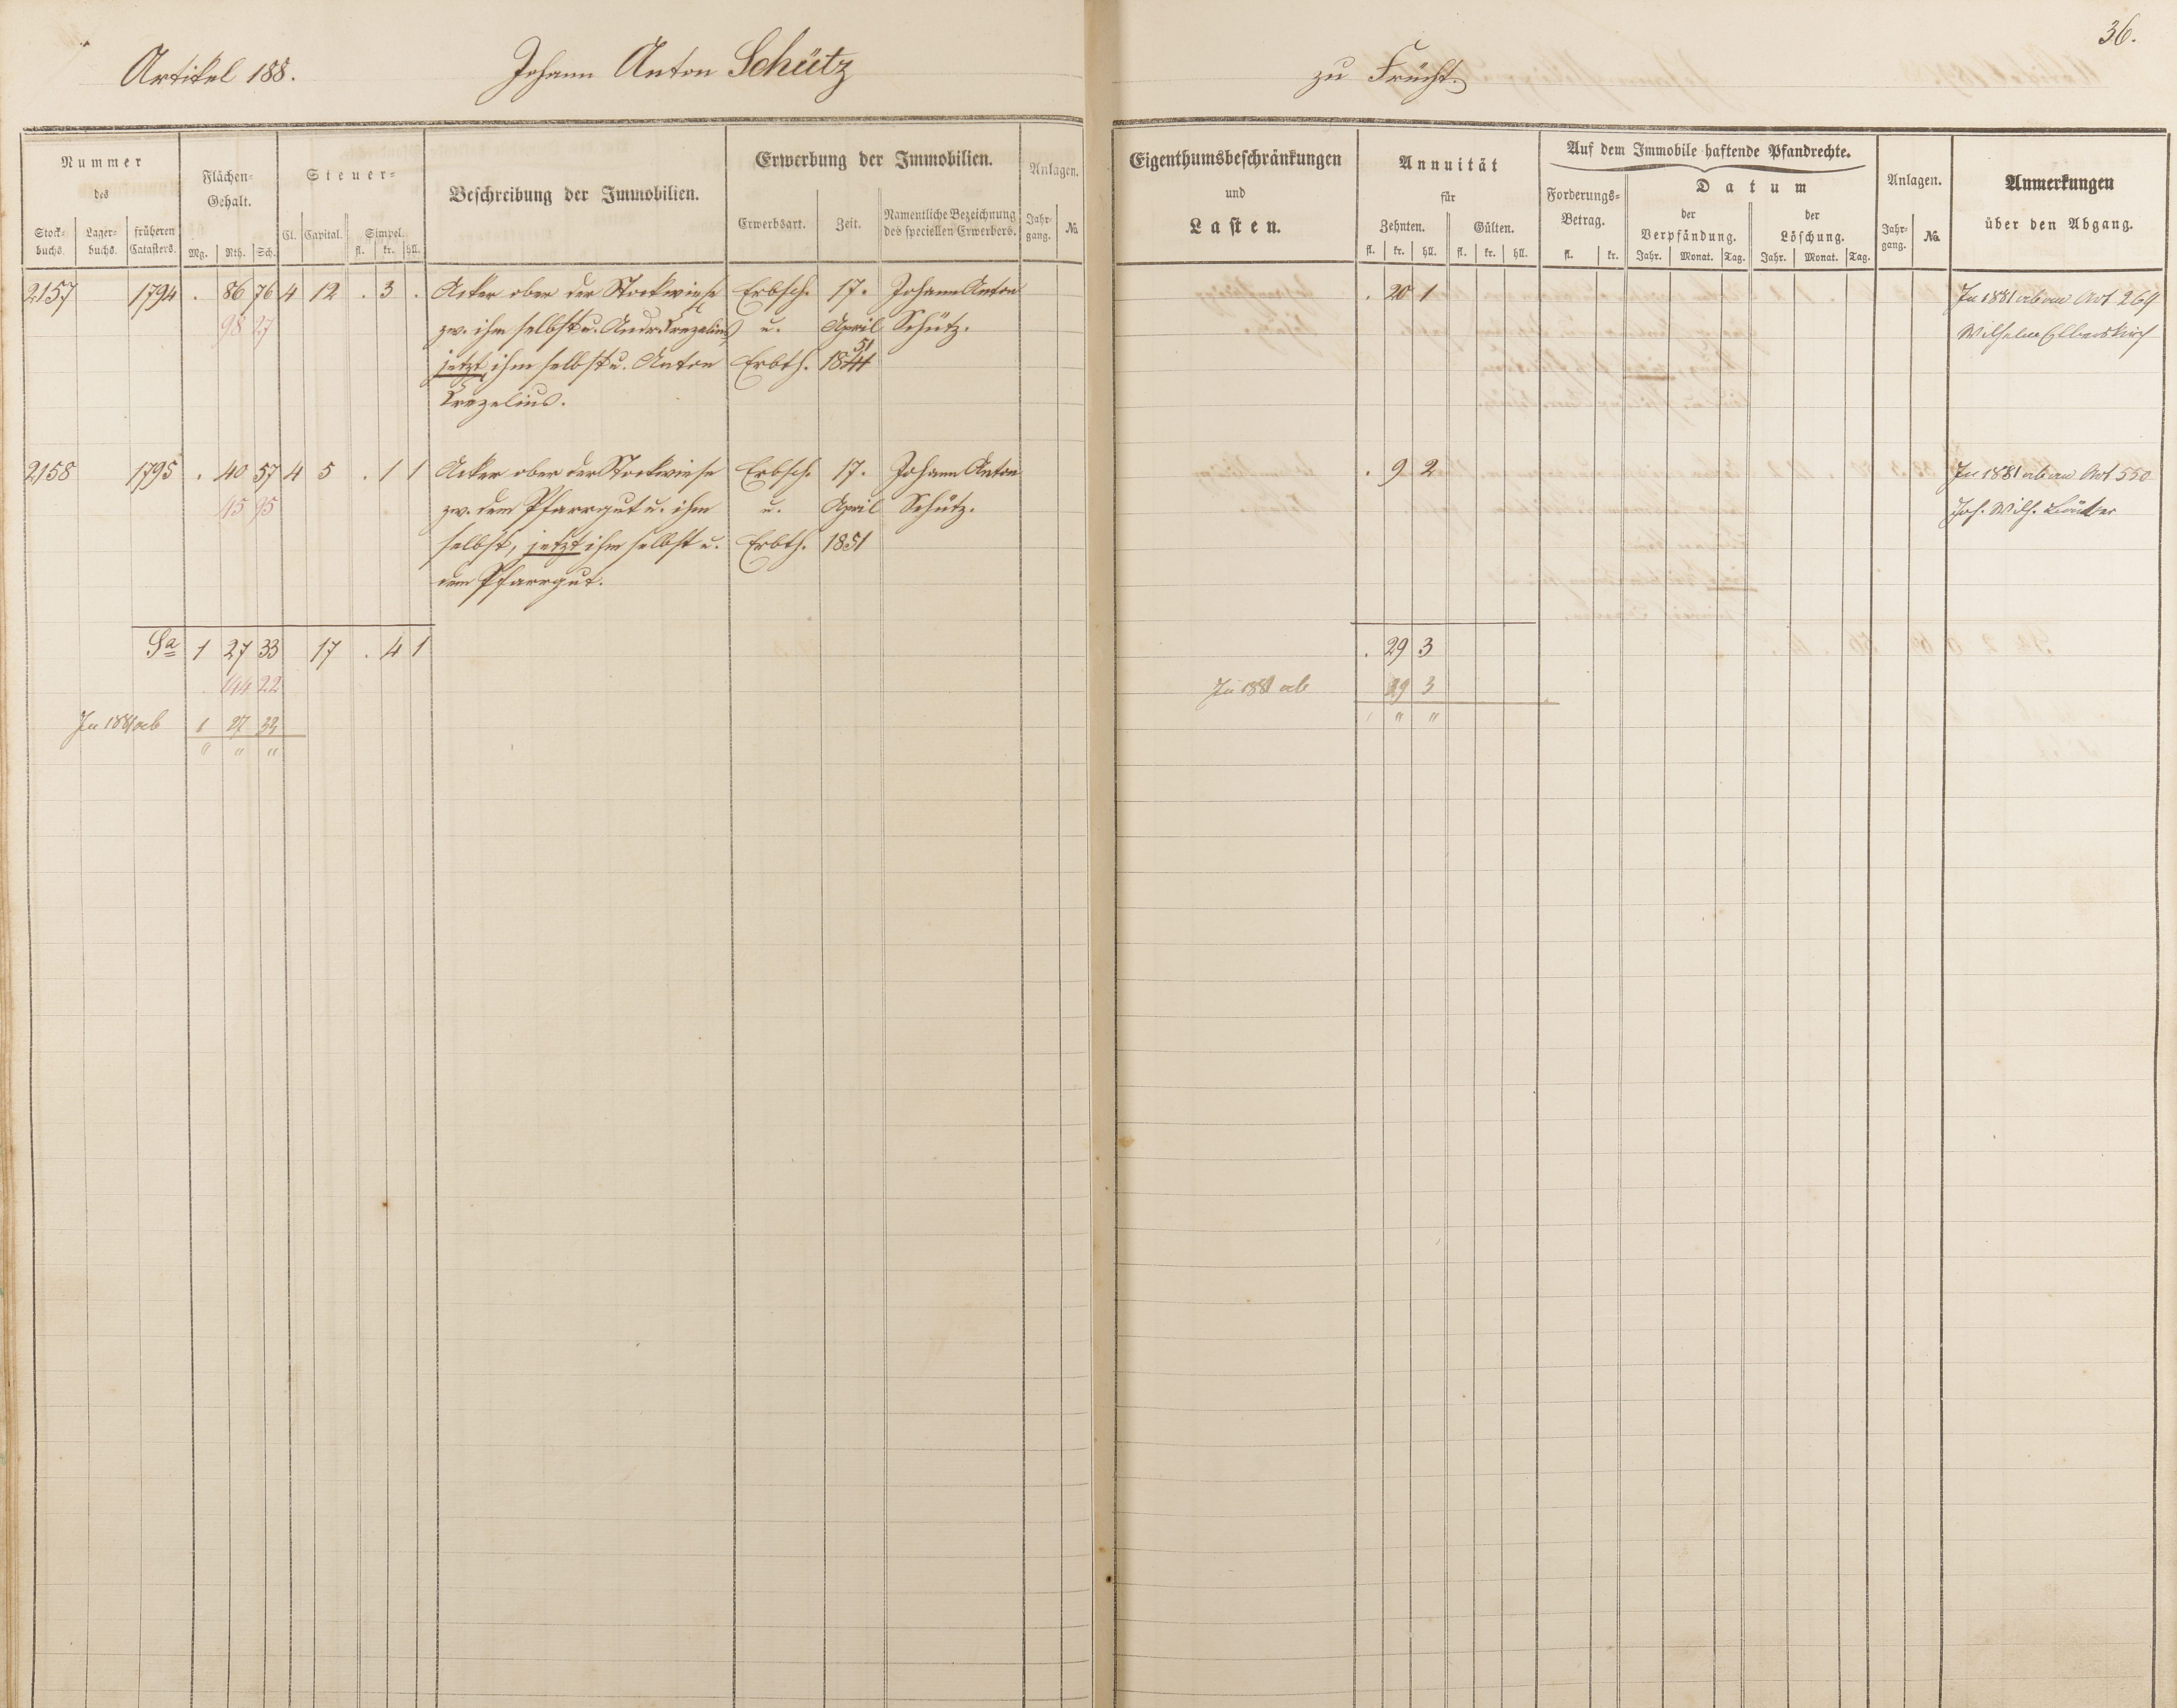 36.
Artikel 188. Johann Anton Schütz zu Frücht.
Nummer des
Stock-buchs. Lager-buchs. früheren Catasters.
Flächen-Gehalt.
Mg. Rth. Sch.
Steuer-
Cl. Capital. Simpel.
fl. kr. hll.
Beschreibung der Immobilien.
Erwerbung der Immobilien.
Erwerbsart. Zeit. Namentliche Bezeichnung des speciellen Erwerbers.
Anlagen.
Jahr-gang. No.
Eigenthumsbeschränkungen
und
Lasten.
Annuität
für
Zehnten. Gülten.
fl. kr. hll. fl. kr. hll.
Auf dem Immobile haftende Pfandrechte.
Forderungs-Betrag.
fl. kr.
Datum
der Verpfändung. der Löschung.
Jahr. Monat. Tag. Jahr. Monat. Tag.
Anlagen.
Jahr-gang. No.
Anmerkungen
über den Abgang.
2157 1794 . 86 76 4 12 . 3 . Acker ober der Stockwiese Erbsch. 17. Johann Anton . 20 1 In 1881 ab an Art 269
98 27 zw. ihm selbst u. Andr. Crezelius, u. April Schütz. Wilhelm
jetzt ihm selbst u. Anton Erbth. 1844 51
Crezelius.
2158 1795 . 40 57 4 5 . 1 1 Acker ober der Stockwiese Erbsch. 17. Johann Anton . 9 2 In 1881 ab an Art 550
45 95 zw. dem Pfarrgut u. ihm u. April Schütz. Joh. Wilh.
selbst, jetzt ihm selbst u. Erbth. 1851
dem Pfarrgut.
Sa 1 27 33 17 . 4 1 . 29 3
144 22
In 1881 ab 29 3
In 1881 ab 1 27 33
" " "
" "